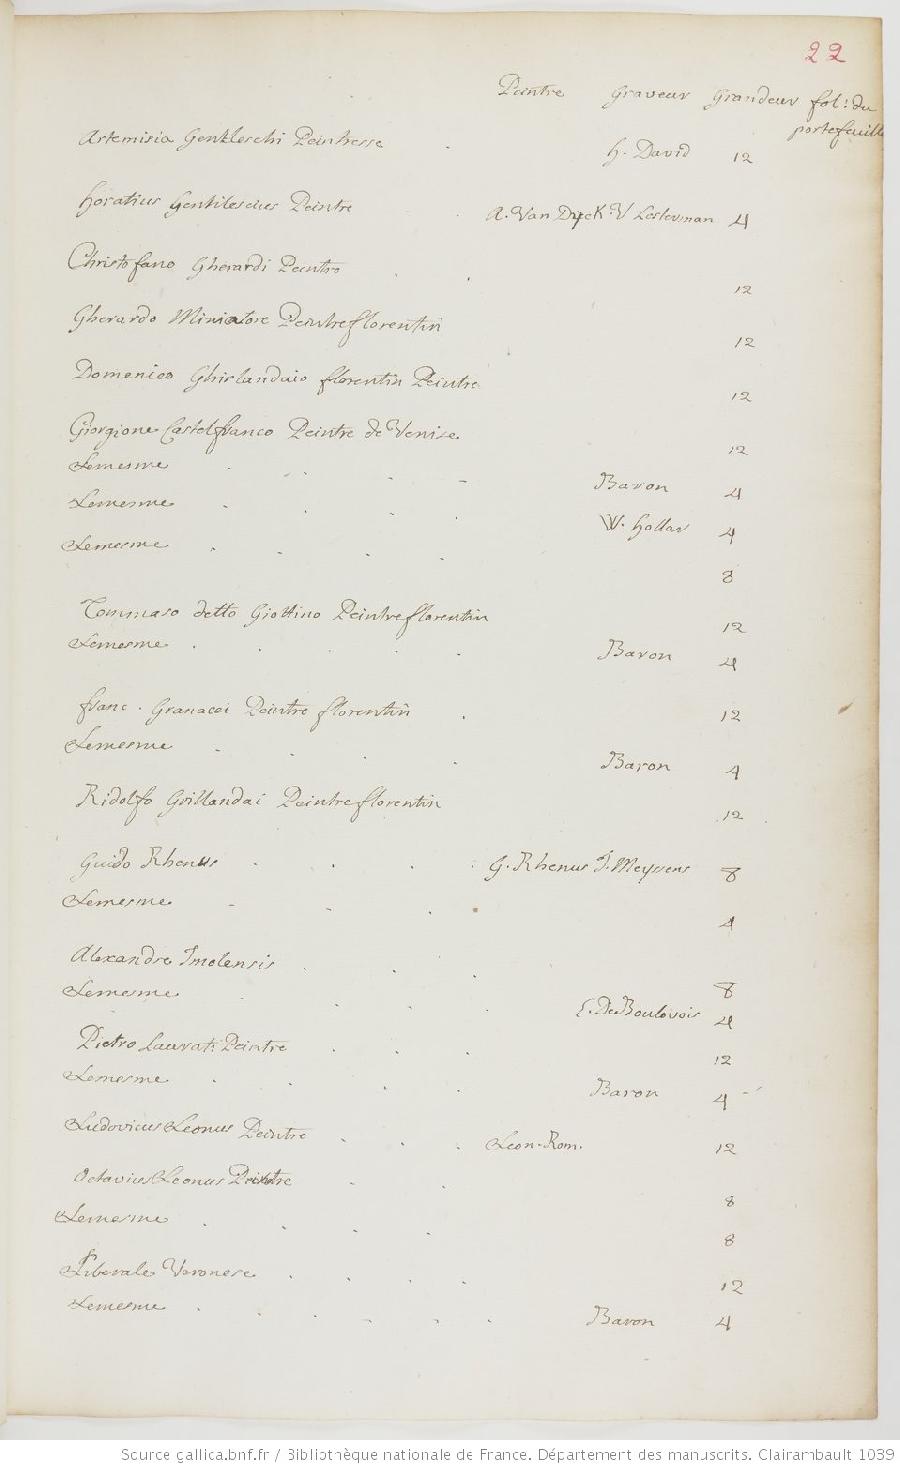 22
Peintre Graveur Grandeur fol: du
portefeuille
Artemisia Gentileschi Peintresse H. David 12
Horatius Gentilescius Peintre A. Van Dyck V Lesterman 4
Christofano Gherardi Peintre 12
Gherardo Miniatore Peintre florentin 12
Domenico Ghirlandaio florentin Peintre 12
Giorgione Castelfranco Peintre de Venise 12
Lemesme Baron 4
Lemesme W. Hollar 4
Lemesme 8
Tommaso detto Giottino Peintre florentin 12
Lemesme Baron 4
franc. Granacci Peintre florentin 12
Lemesme Baron 4
Ridolfo Grillandai Peintre florentin 12
Guido Rhenus G. Rhenus J. Meyssens 8
Lemesme 4
Alexandre Imolensis 8
Lemesme E. De Boulovois 4
Pietro Laurati Peintre 12
Lemesme Baron 4
Ludovicus Leonus Peintre Leon. Rom. 12
Octavius Leonus Peintre 8
Lemesme 8
Liberale Veronese 12
Lemesme Baron 4
Source gallica.bnf.fr / Bibliothèque nationale de France. Département des manuscrits. Clairambault 1039